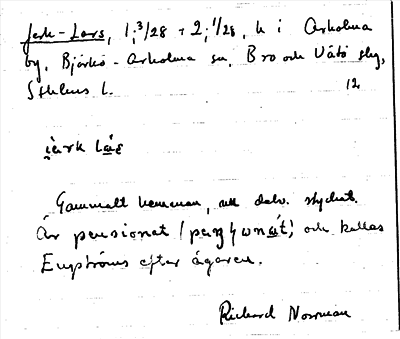 Jerk-Lars, 1;3/28 + 2;1/28, h i Arholma
by, Björkö-Arholma sn, Bro och Vätö slg,
Sthlms l. 12
Gammalt hemman, nu delv. stychat.
Är pensionat och kallas
Euphröns efter ägaren.
Richard Norrman